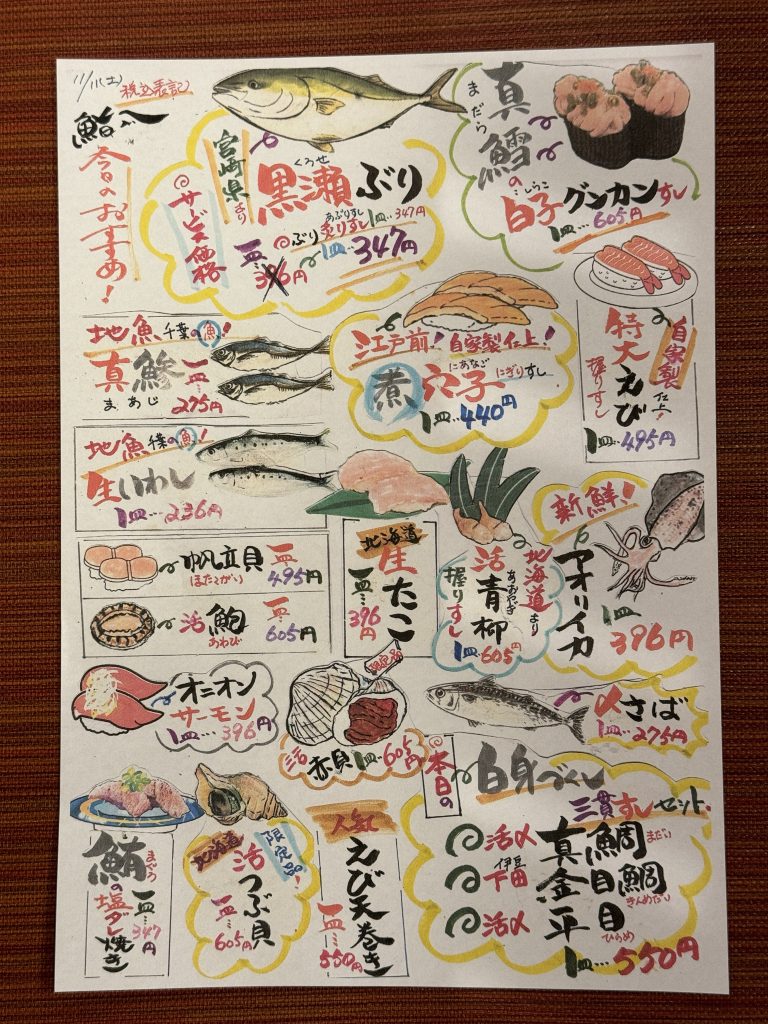 11/11(土)
税込表記
今日のおすすめ!
宮崎県より
くろせ
黒瀬ぶり
サービス価格
あぶりすし
ぶり炙りすし1皿…347円
一皿…396円
1皿…347円
まだら
真鱈の
しらこ
白子グンカンすし
1皿…605円
地魚千葉の魚!
真鯵
まあじ
一皿…275円
江戸前!自家製仕上!
にあなご
煮穴子にぎりすし
1皿…440円
自家製仕上!
特大えび
握りすし
1皿…495円
地魚千葉の魚!
生いわし
1皿…236円
帆立貝
ほたてがい
一皿…495円
活鮑
あわび
一皿…605円
北海道
生たこ
一皿…396円
北海道より
あおやぎ
活青柳
握りすし
1皿…605円
新鮮!
アオリイカ
1皿…396円
オニオン
サーモン
1皿…396円
限定品
活赤貝1皿…605円
〆さば
1皿…275円
まぐろ
鮪の塩ダレ焼き
一皿…347円
北海道
限定品!
活つぶ貝
一皿…605円
人気
えび天巻き
一皿…550円
本日の
白身づくし
三貫すしセット
活〆真鯛まだい
伊豆
下田金目鯛きんめだい
活〆平目ひらめ
1皿…550円